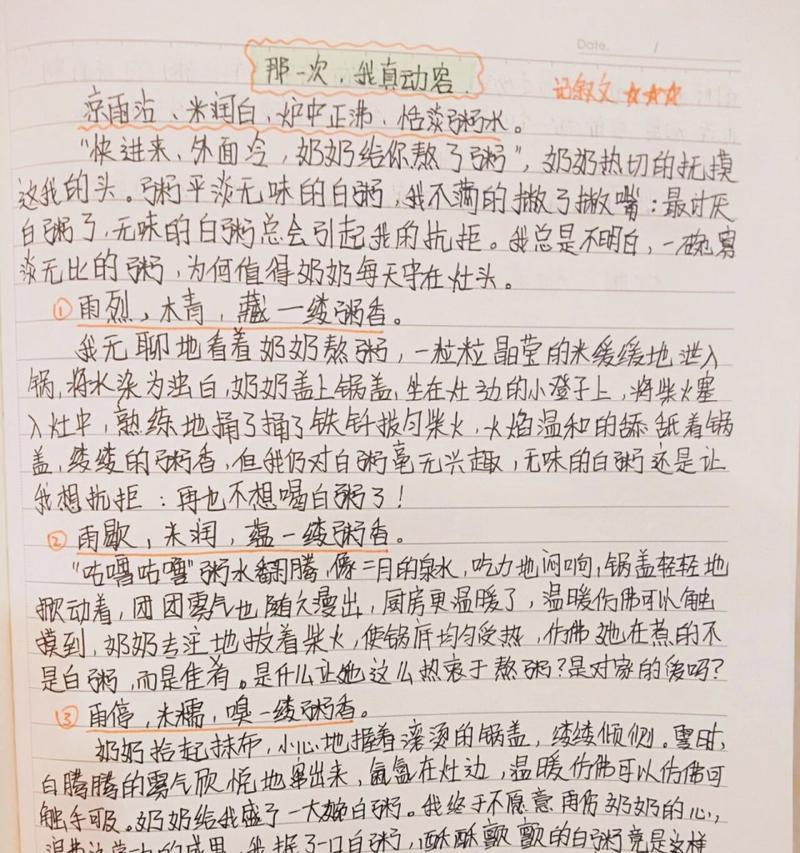 Date. /
那一次，我真动容.
记叙文 ☆☆☆
京雨沾、米润白，炉中正沸，恬淡粥水。
"快进来、外面冷，奶奶给你熬了粥"，奶奶热切的抚摸
这我的头。粥平淡无味的白粥，我不满的撇了撇嘴：最讨厌
白粥了，无味的白粥总会引起我的抗拒。我总是不明白，一碗寡
淡无比的粥，为何值得奶奶每天守在灶头。
① 雨烈，木青，藏一缕粥香。
我无聊地看着奶奶熬粥，一粒粒晶莹的米缓缓地进入
锅，将水染为浊白，奶奶盖上锅盖，坐在灶边的小凳子上，将柴火塞
入灶中，熟练地捅了捅了铁钎拨匀柴火，火焰温和的舔舐着锅
盖，缕缕的粥香，但我仍对白粥毫无兴趣，无味的白粥还是让
我想抗拒：再也不想喝白粥了！
② 雨歇，米润，蕴一缕粥香。
"咕噜咕噜"粥水翻腾，像二月的泉水，吃力地闷响，锅盖轻轻地
掀动着，团团雾气也随久漫出，厨房更温暖了，温暖仿佛可以触
摸到，奶奶专注地拨着柴火，使锅底均匀受热，仿佛她在煮的不
是白粥，而是佳肴。是什么让她这么热衷于熬粥？是对家的爱吗？
③ 雨停，米糯，嗅一缕粥香。
奶奶拾起抹布，小心地握着滚烫的锅盖，缕缕倾侧。霎时，
白腾腾的雾气欣悦地窜出来，氤氲在灶边，温暖仿佛可以仿佛可
触手可及。奶奶给我盛了一大碗白粥。我终于不愿意再伤奶奶的心，
的成果，我抿了一口白粥，酥酥颤颤的白粥竟是这样